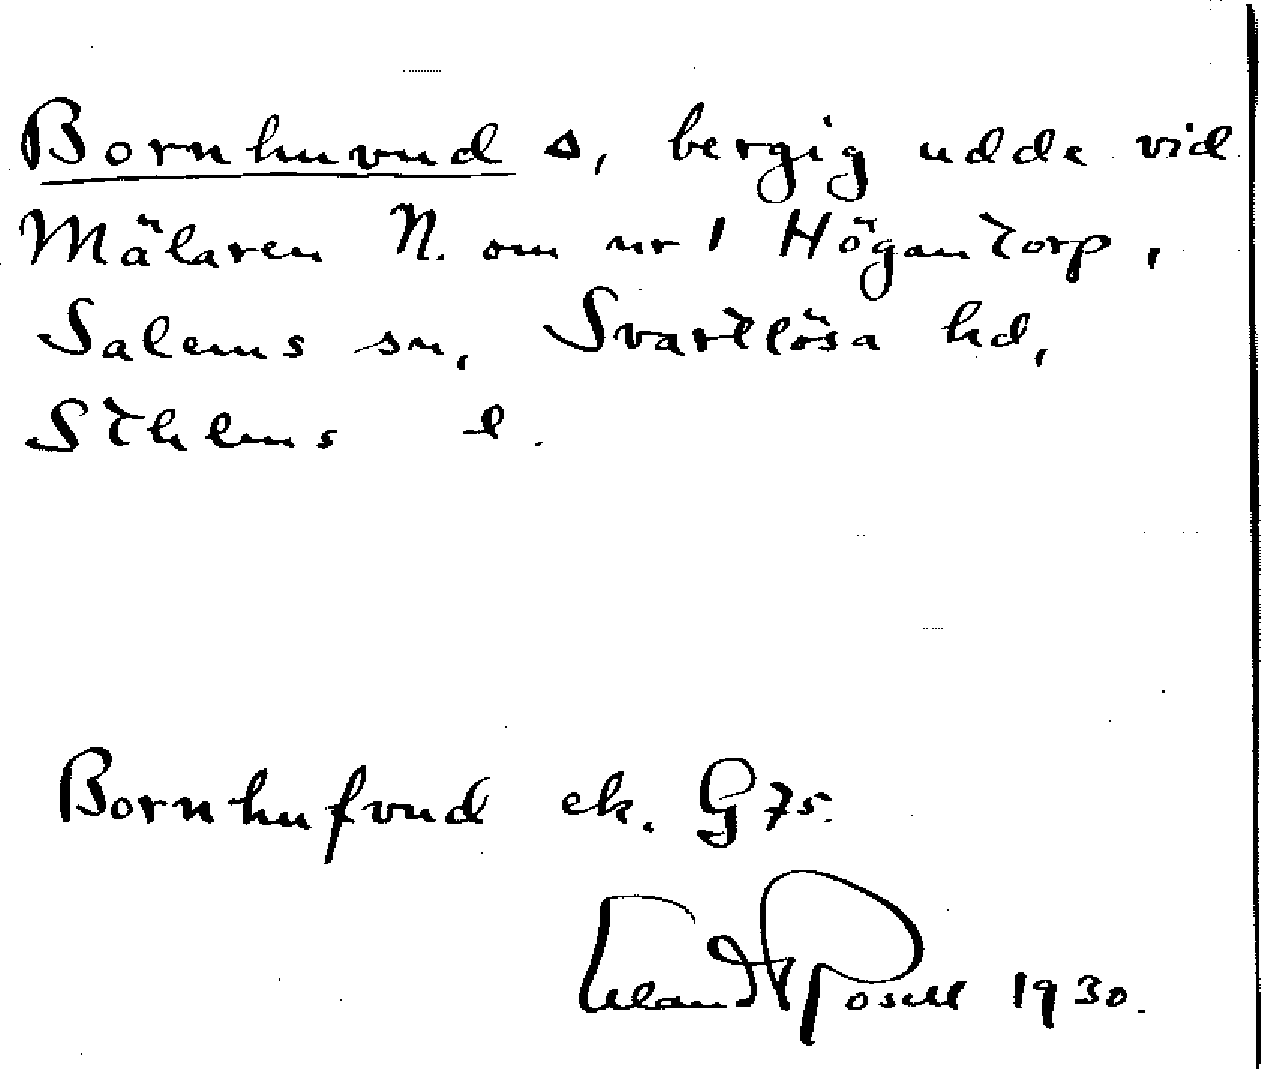 Bornhuvud Δ, bergig udde vid
Mälaren N. om nr 1 Högantorp,
Salems sn, Svartlösa hd,
Sthlms l.
Bornhufvud ek. G 75.
Erland Rosell 1930.